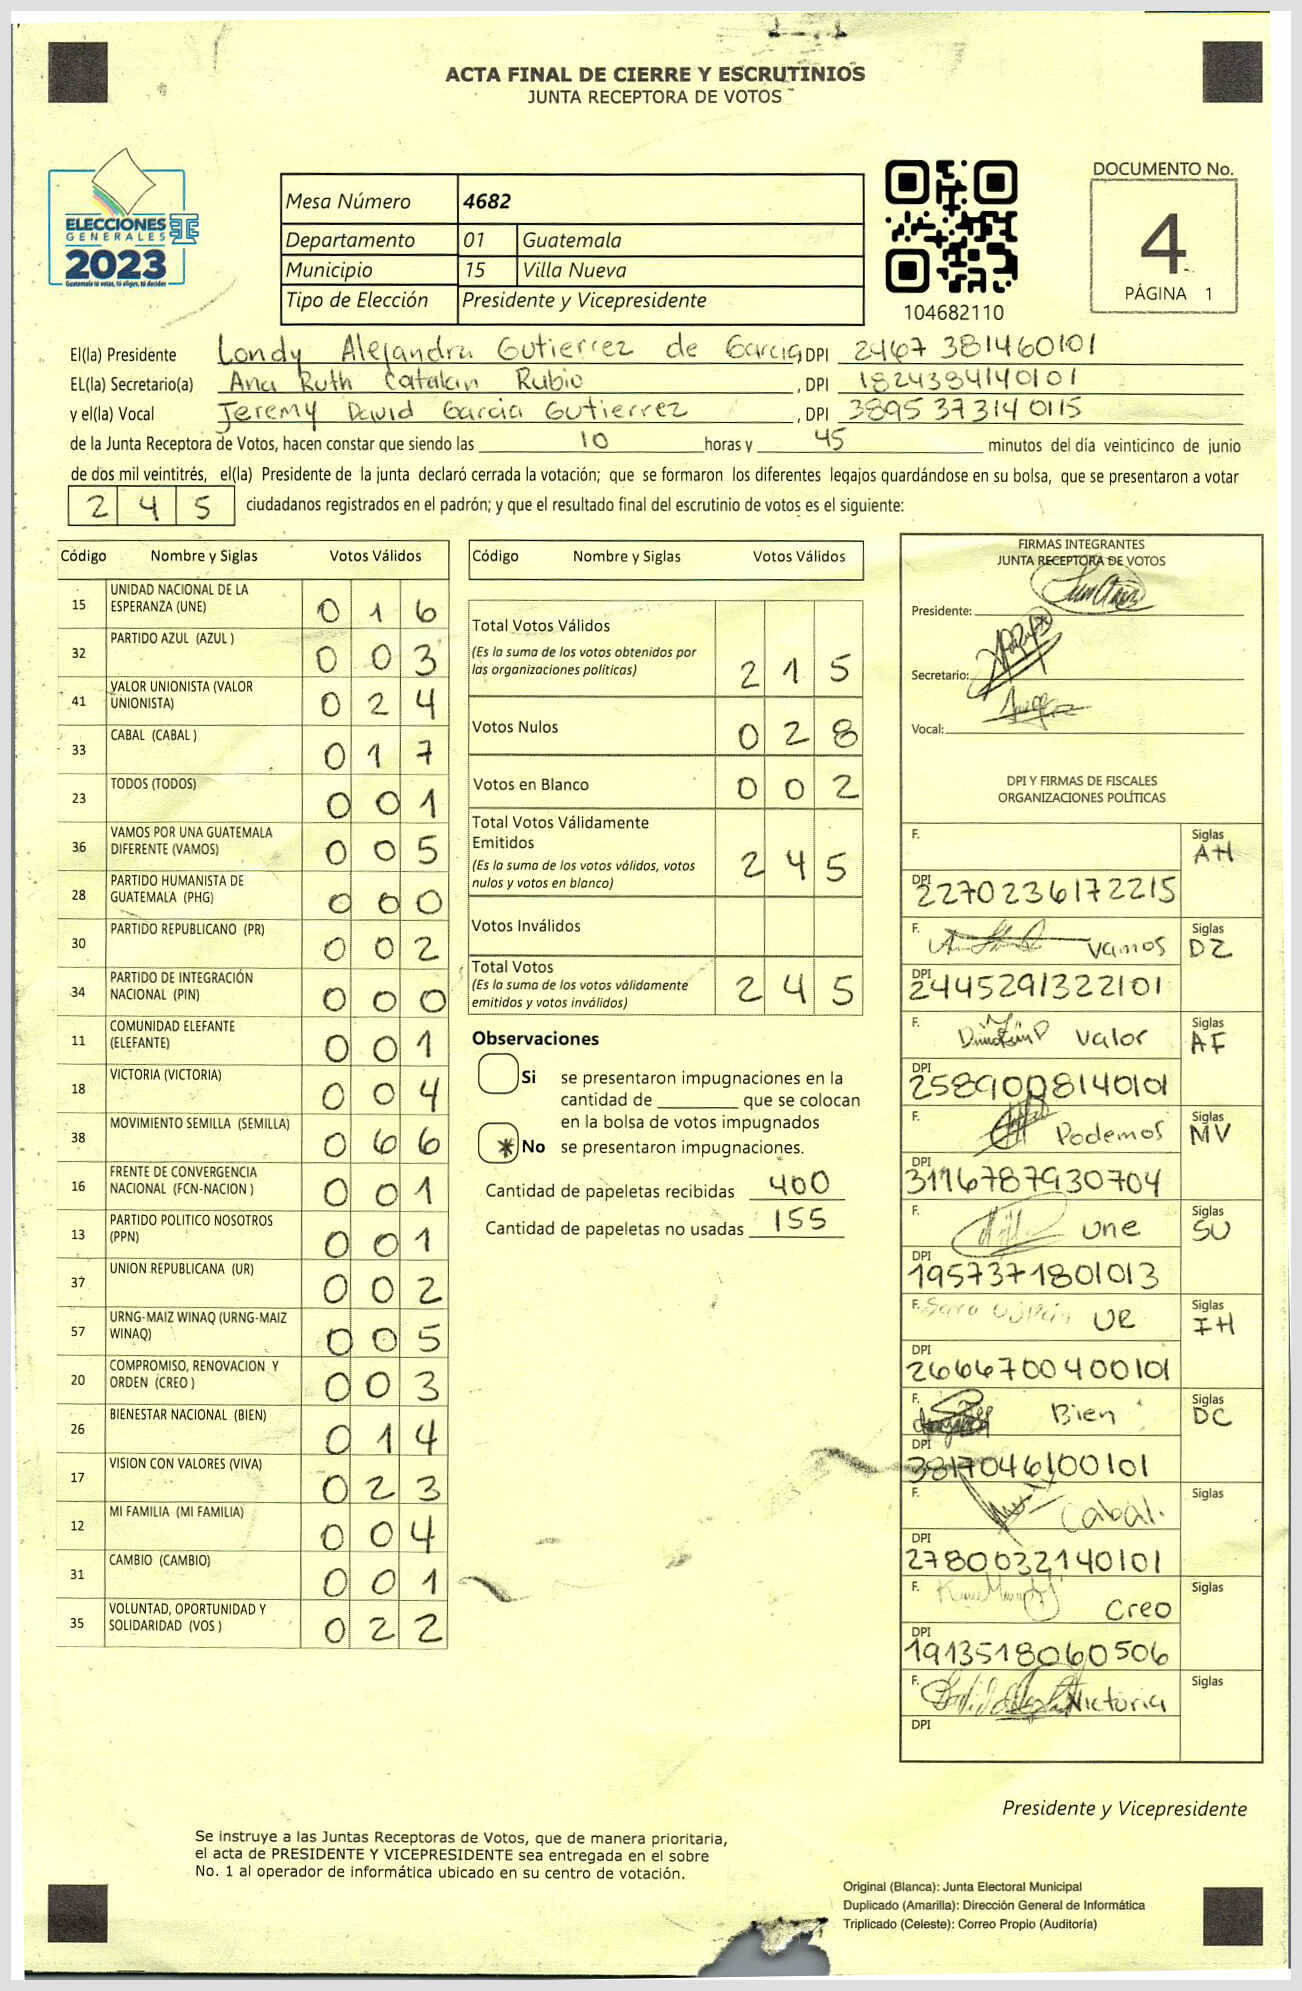 ACTA FINAL DE CIERRE Y ESCRUTINIOS
JUNTA RECEPTORA DE VOTOS
ELECCIONES
GENERALES
2023
Guatemala tú votas, tú eliges, tú decides
Mesa Número 4682
Departamento 01 Guatemala
Municipio 15 Villa Nueva
Tipo de Elección Presidente y Vicepresidente
104682110
DOCUMENTO No.
4
PÁGINA 1
El(la) Presidente Londy Alejandra Gutierrez de Garcia DPI 2467 381460101
EL(la) Secretario(a) Ana Ruth Catalan Rubio , DPI 1824384140101
y el(la) Vocal Jeremy David Garcia Gutierrez , DPI 3895 37314 0115
de la Junta Receptora de Votos, hacen constar que siendo las 10 horas y 45 minutos del día veinticinco de junio
de dos mil veintitrés, el(la) Presidente de la junta declaró cerrada la votación; que se formaron los diferentes legajos guardándose en su bolsa, que se presentaron a votar
2 4 5 ciudadanos registrados en el padrón; y que el resultado final del escrutinio de votos es el siguiente:
Código Nombre y Siglas Votos Válidos
15 UNIDAD NACIONAL DE LA ESPERANZA (UNE) 0 1 6
32 PARTIDO AZUL (AZUL ) 0 0 3
41 VALOR UNIONISTA (VALOR UNIONISTA) 0 2 4
33 CABAL (CABAL ) 0 1 7
23 TODOS (TODOS) 0 0 1
36 VAMOS POR UNA GUATEMALA DIFERENTE (VAMOS) 0 0 5
28 PARTIDO HUMANISTA DE GUATEMALA (PHG) 0 0 0
30 PARTIDO REPUBLICANO (PR) 0 0 2
34 PARTIDO DE INTEGRACIÓN NACIONAL (PIN) 0 0 0
11 COMUNIDAD ELEFANTE (ELEFANTE) 0 0 1
18 VICTORIA (VICTORIA) 0 0 4
38 MOVIMIENTO SEMILLA (SEMILLA) 0 6 6
16 FRENTE DE CONVERGENCIA NACIONAL (FCN-NACION ) 0 0 1
13 PARTIDO POLITICO NOSOTROS (PPN) 0 0 1
37 UNION REPUBLICANA (UR) 0 0 2
57 URNG-MAIZ WINAQ (URNG-MAIZ WINAQ) 0 0 5
20 COMPROMISO, RENOVACION Y ORDEN (CREO ) 0 0 3
26 BIENESTAR NACIONAL (BIEN) 0 1 4
17 VISION CON VALORES (VIVA) 0 2 3
12 MI FAMILIA (MI FAMILIA) 0 0 4
31 CAMBIO (CAMBIO) 0 0 1
35 VOLUNTAD, OPORTUNIDAD Y SOLIDARIDAD (VOS ) 0 2 2
Código Nombre y Siglas Votos Válidos
Total Votos Válidos 2 1 5
(Es la suma de los votos obtenidos por
las organizaciones politicas)
Votos Nulos 0 2 8
Votos en Blanco 0 0 2
Total Votos Válidamente
Emitidos 2 4 5
(Es la suma de los votos válidos, votos
nulos y votos en blanco)
Votos Inválidos
Total Votos 2 4 5
(Es la suma de los votos válidamente
emitidos y votos inválidos)
Observaciones
Si se presentaron impugnaciones en la
cantidad de ________ que se colocan
en la bolsa de votos impugnados
* No se presentaron impugnaciones.
Cantidad de papeletas recibidas 400
Cantidad de papeletas no usadas 155
FIRMAS INTEGRANTES
JUNTA RECEPTORA DE VOTOS
Presidente:
Secretario:
Vocal:
DPI Y FIRMAS DE FISCALES
ORGANIZACIONES POLÍTICAS
F. Siglas AH
DPI 2270236172215
F. Vamos Siglas DZ
DPI 2445291322101
F. Valor Siglas AF
DPI 2589008140101
F. Podemos Siglas MV
DPI 3116787930704
F. Une Siglas SU
DPI 1957371801013
F. Sara UR Siglas IH
DPI 2666700400101
F. Bien Siglas DC
DPI 3817046100101
F. Cabal. Siglas
DPI 2780032140101
F. Creo Siglas
DPI 1913518060506
F. Victoria Siglas
DPI
Presidente y Vicepresidente
Se instruye a las Juntas Receptoras de Votos, que de manera prioritaria,
el acta de PRESIDENTE Y VICEPRESIDENTE sea entregada en el sobre
No. 1 al operador de informática ubicado en su centro de votación.
Original (Blanca): Junta Electoral Municipal
Duplicado (Amarilla): Dirección General de Informática
Triplicado (Celeste): Correo Propio (Auditoría)